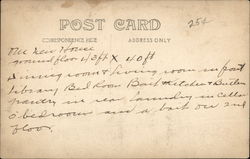 POST CARD
25¢
CORRESPONDENCE HERE
ADDRESS ONLY
The New House
ground floor 43 ft X 40 ft
Dinning room & living room in front
Library Bed Room Bath Kitchen & Butlers
pantry in rear Laundry in cellar
5 bedrooms and a bath on 2nd
floor.